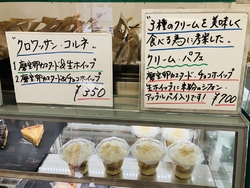 "クロワッサン・コルネ"
1. 塵宝卵カスタード&生ホイップ
2. 塵宝卵カスタード&チョコホイップ
¥350
"3種のクリームを美味しく
食べる為に考案した
クリーム・パフェ
塵宝卵カスタード、チョコホイップ
生ホイップに米粉のシフォン
アップルパイ入りです! ¥700